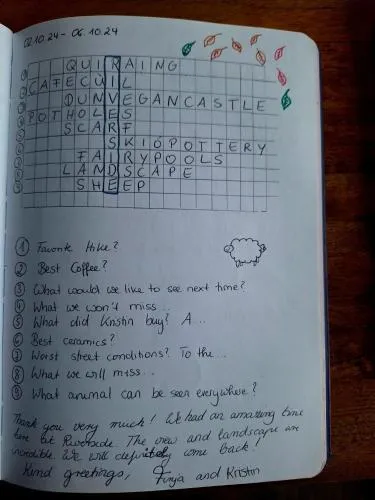 02.10.24 - 06.10.24
QUIRAING
CAFECÙIL
DUNVEGANCASTLE
POTHOLES
SCARF
SKIÓPOTTERY
FAIRYPOOLS
LANDSCAPE
SHEEP
① Favorite Hike?
② Best Coffee?
③ What would we like to see next time?
④ What we won't miss...
⑤ What did Kristin buy? A...
⑥ Best ceramics?
⑦ Worst street conditions? To the...
⑧ What we will miss...
⑨ What animal can be seen everywhere?
Thank you very much! We had an amazing time
here at Riverside. The view and landscape are
incredible. We will definitely come back!
Kind greetings, Finja and Kristin